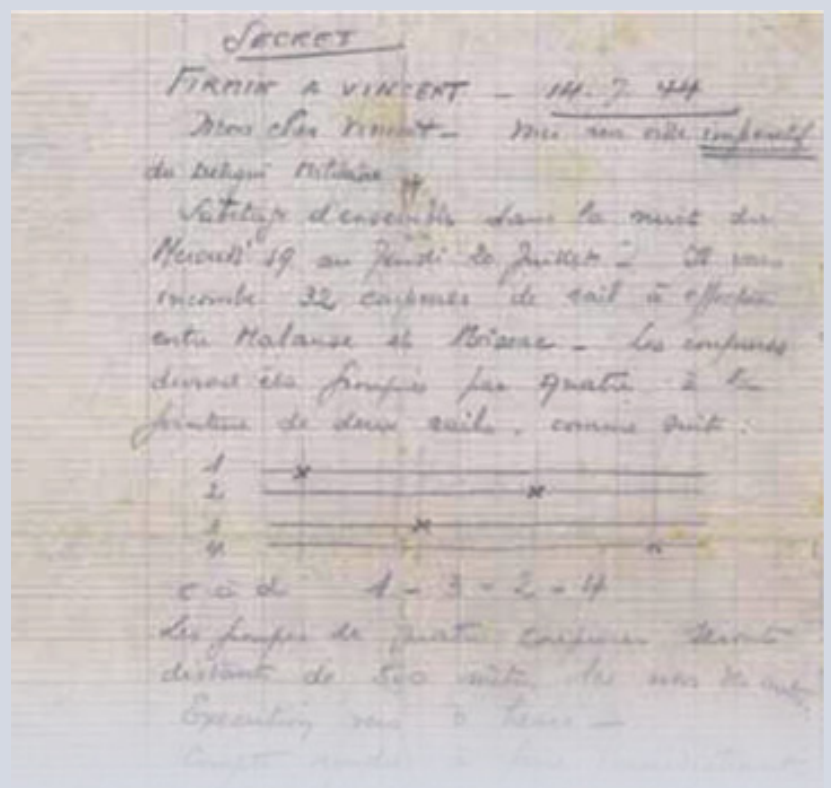 SECRET
FIRMIN A VINCENT - 14.7.44
Mon cher Vincent - impératif
du Délégué Militaire
Sabotage d'ensemble dans la nuit du
Mercredi 19 au Jeudi 20 Juillet - Il vous
incombe 32 coupures de rail à effectuer
entre Malause et Moissac - Les coupures
devront être groupées par quatre à la
jointure de deux rails. comme suit :
1
2
3
4
c à d 1 - 3 - 2 - 4
Les groupes de quatre coupures seront
distants de 500 mètres les uns des autres
Exécution vers heure -
Compte rendu à